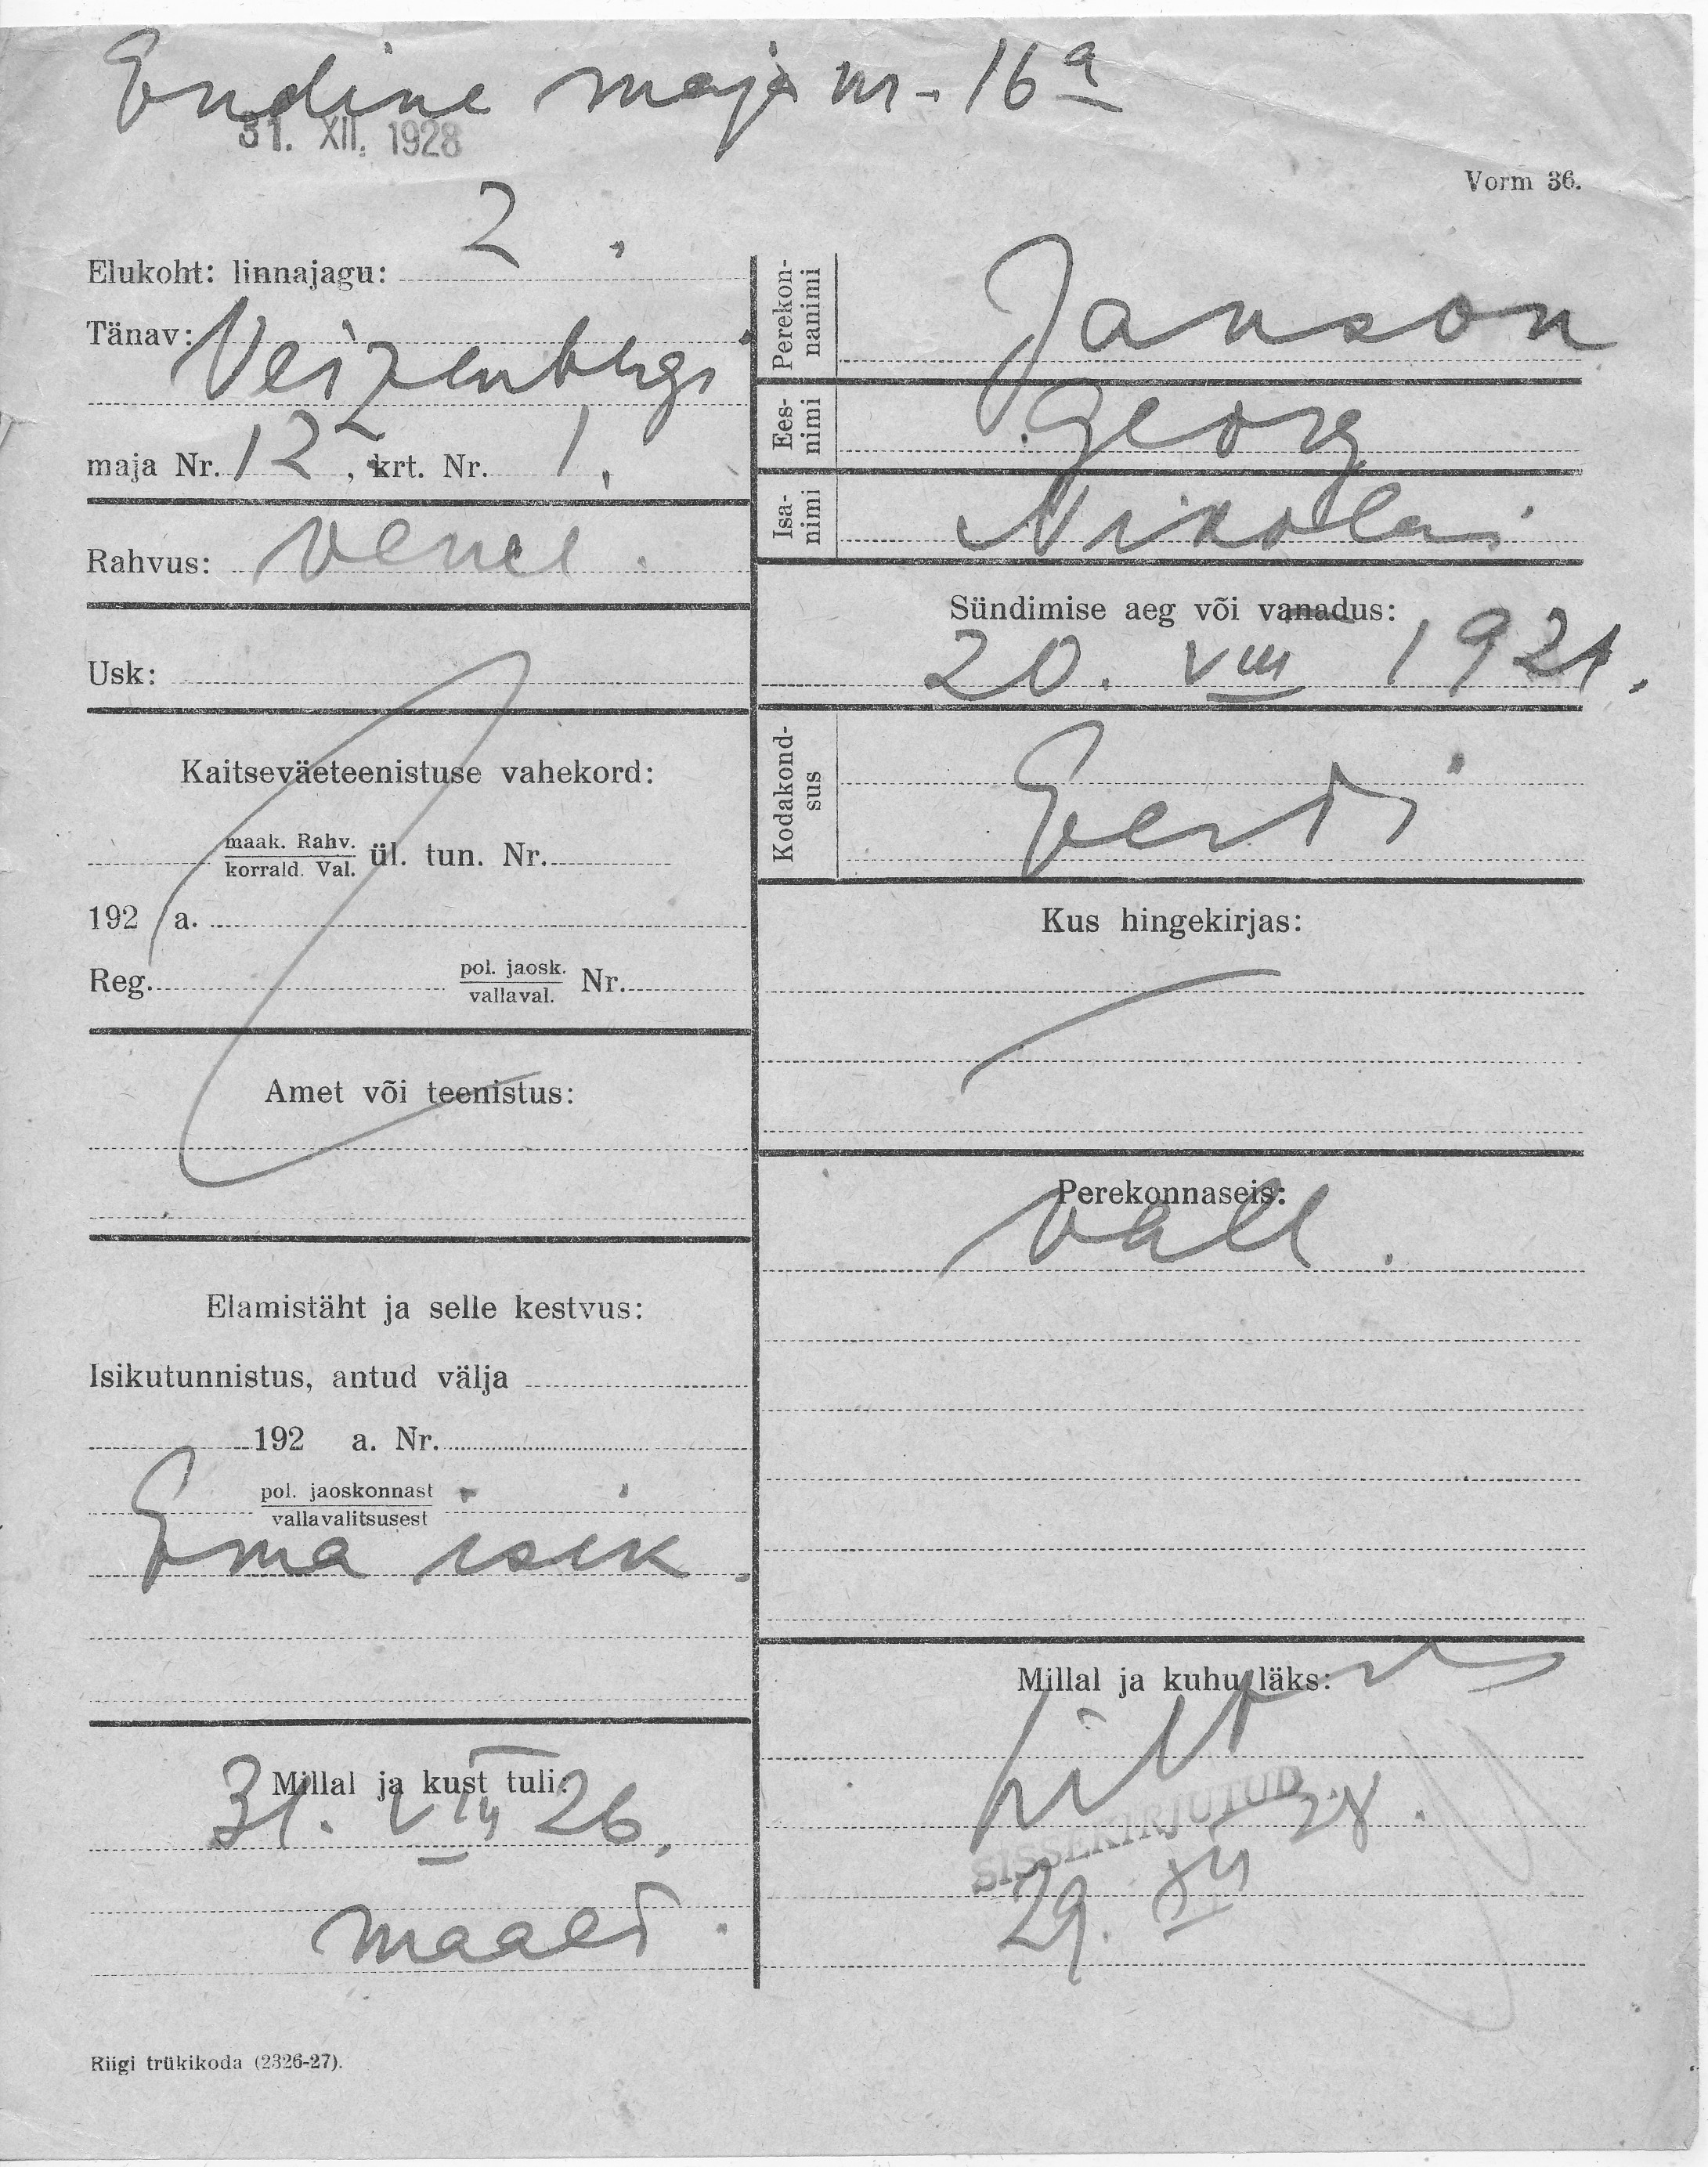 Endine maja nr. 16a
31. XII. 1928
Vorm 36.
Elukoht: linnajagu: 2.
Tänav: Veizenbergi
maja Nr. 12, krt. Nr. 1.
Rahvus: vene.
Usk:
Kaitseväeteenistuse vahekord:
maak. Rahv.
korrald. Val.
ül. tun. Nr.
192 a.
Reg. pol. jaosk. Nr.
vallaval.
Amet või teenistus:
Elamistäht ja selle kestvus:
Isikutunnistus, antud välja
192 a. Nr.
pol. jaoskonnast
vallavalitsusest
Ema isik.
Millal ja kust tuli:
31. VIII 26.
maalt.
Perekonnanimi Janson
Eesnimi Georg
Isanimi Nikolai
Sündimise aeg või vanadus:
20. VIII 1921.
Kodakondsus Eesti
Kus hingekirjas:
Perekonnaseis:
vall.
Millal ja kuhu läks:
SISSEKIRJUTUD
29. XII 28.
Riigi trükikoda (2326-27).